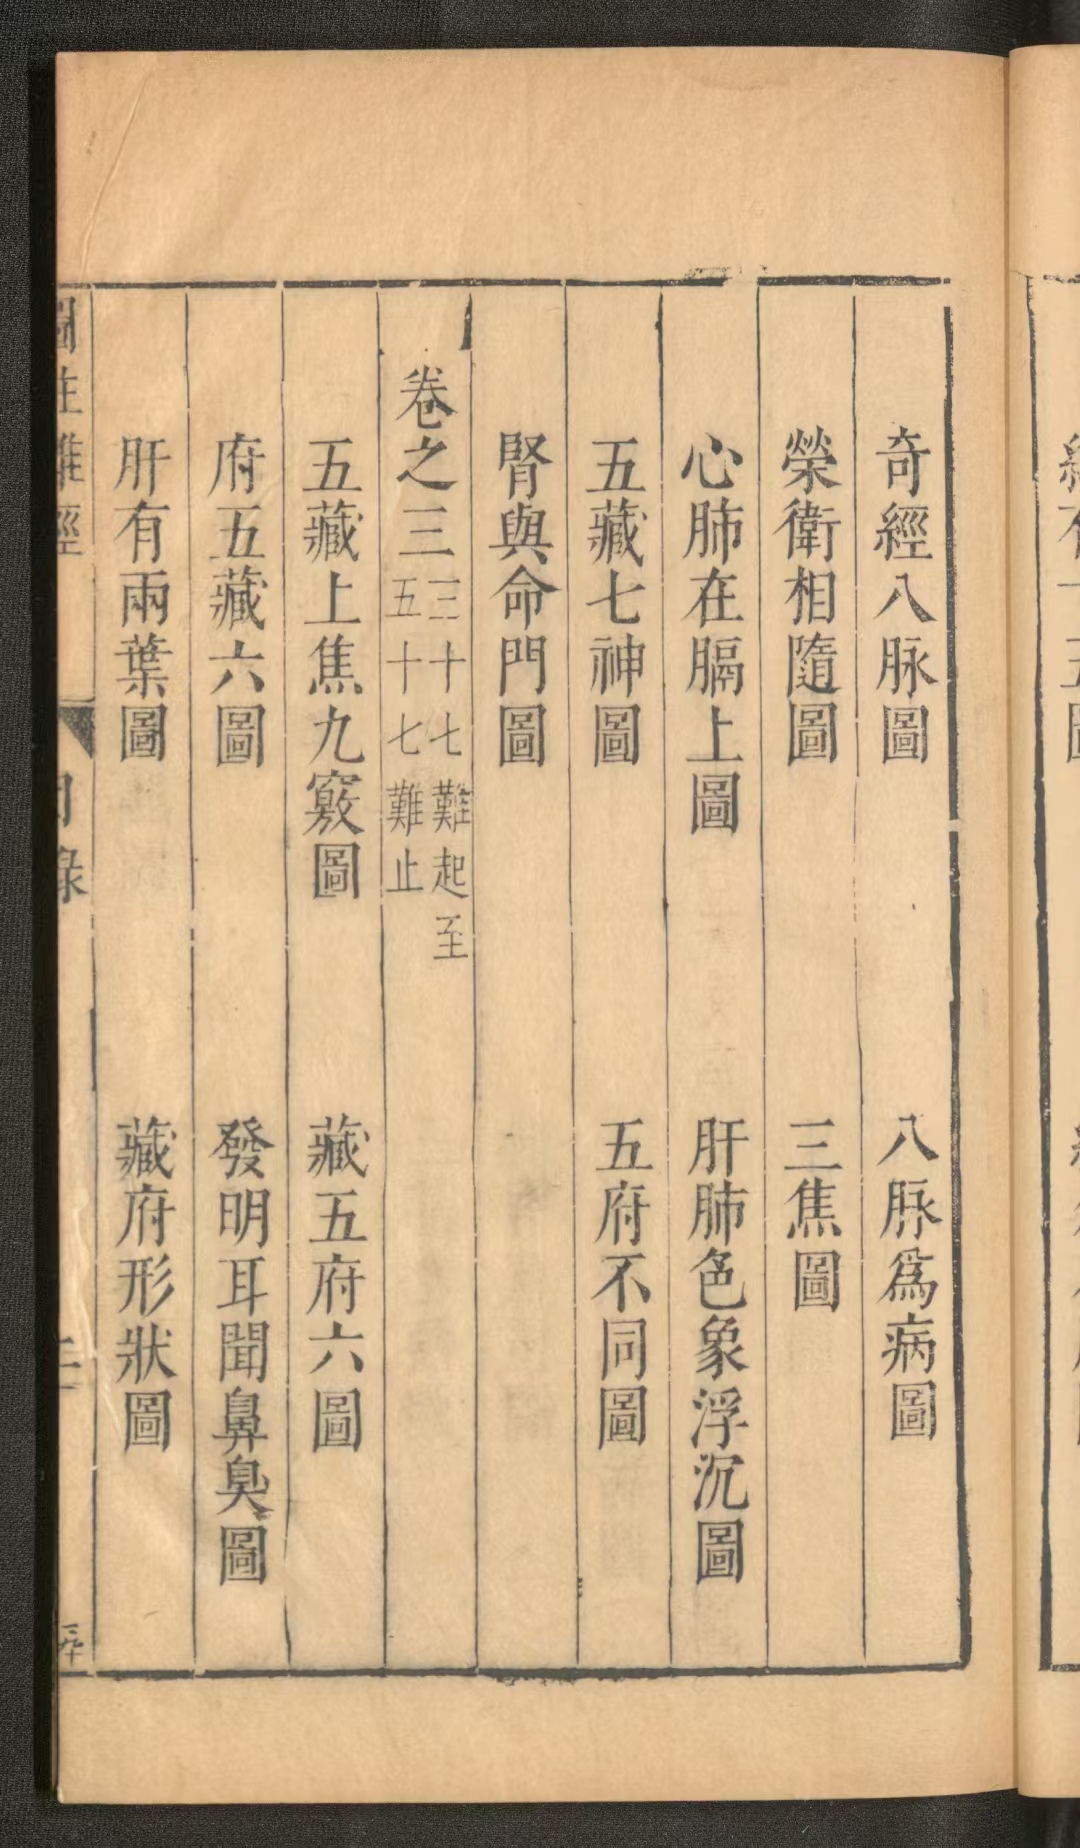 奇經八脉圖
八脉爲病圖
榮衛相隨圖
三焦圖
心肺在膈上圖
肝肺色象浮沉圖
五藏七神圖
五府不同圖
腎與命門圖
卷之三
三十七難起至
五十七難止
五藏上焦九竅圖
藏五府六圖
府五藏六圖
發明耳聞鼻臭圖
肝有兩葉圖
藏府形狀圖
圖註難經
目錄